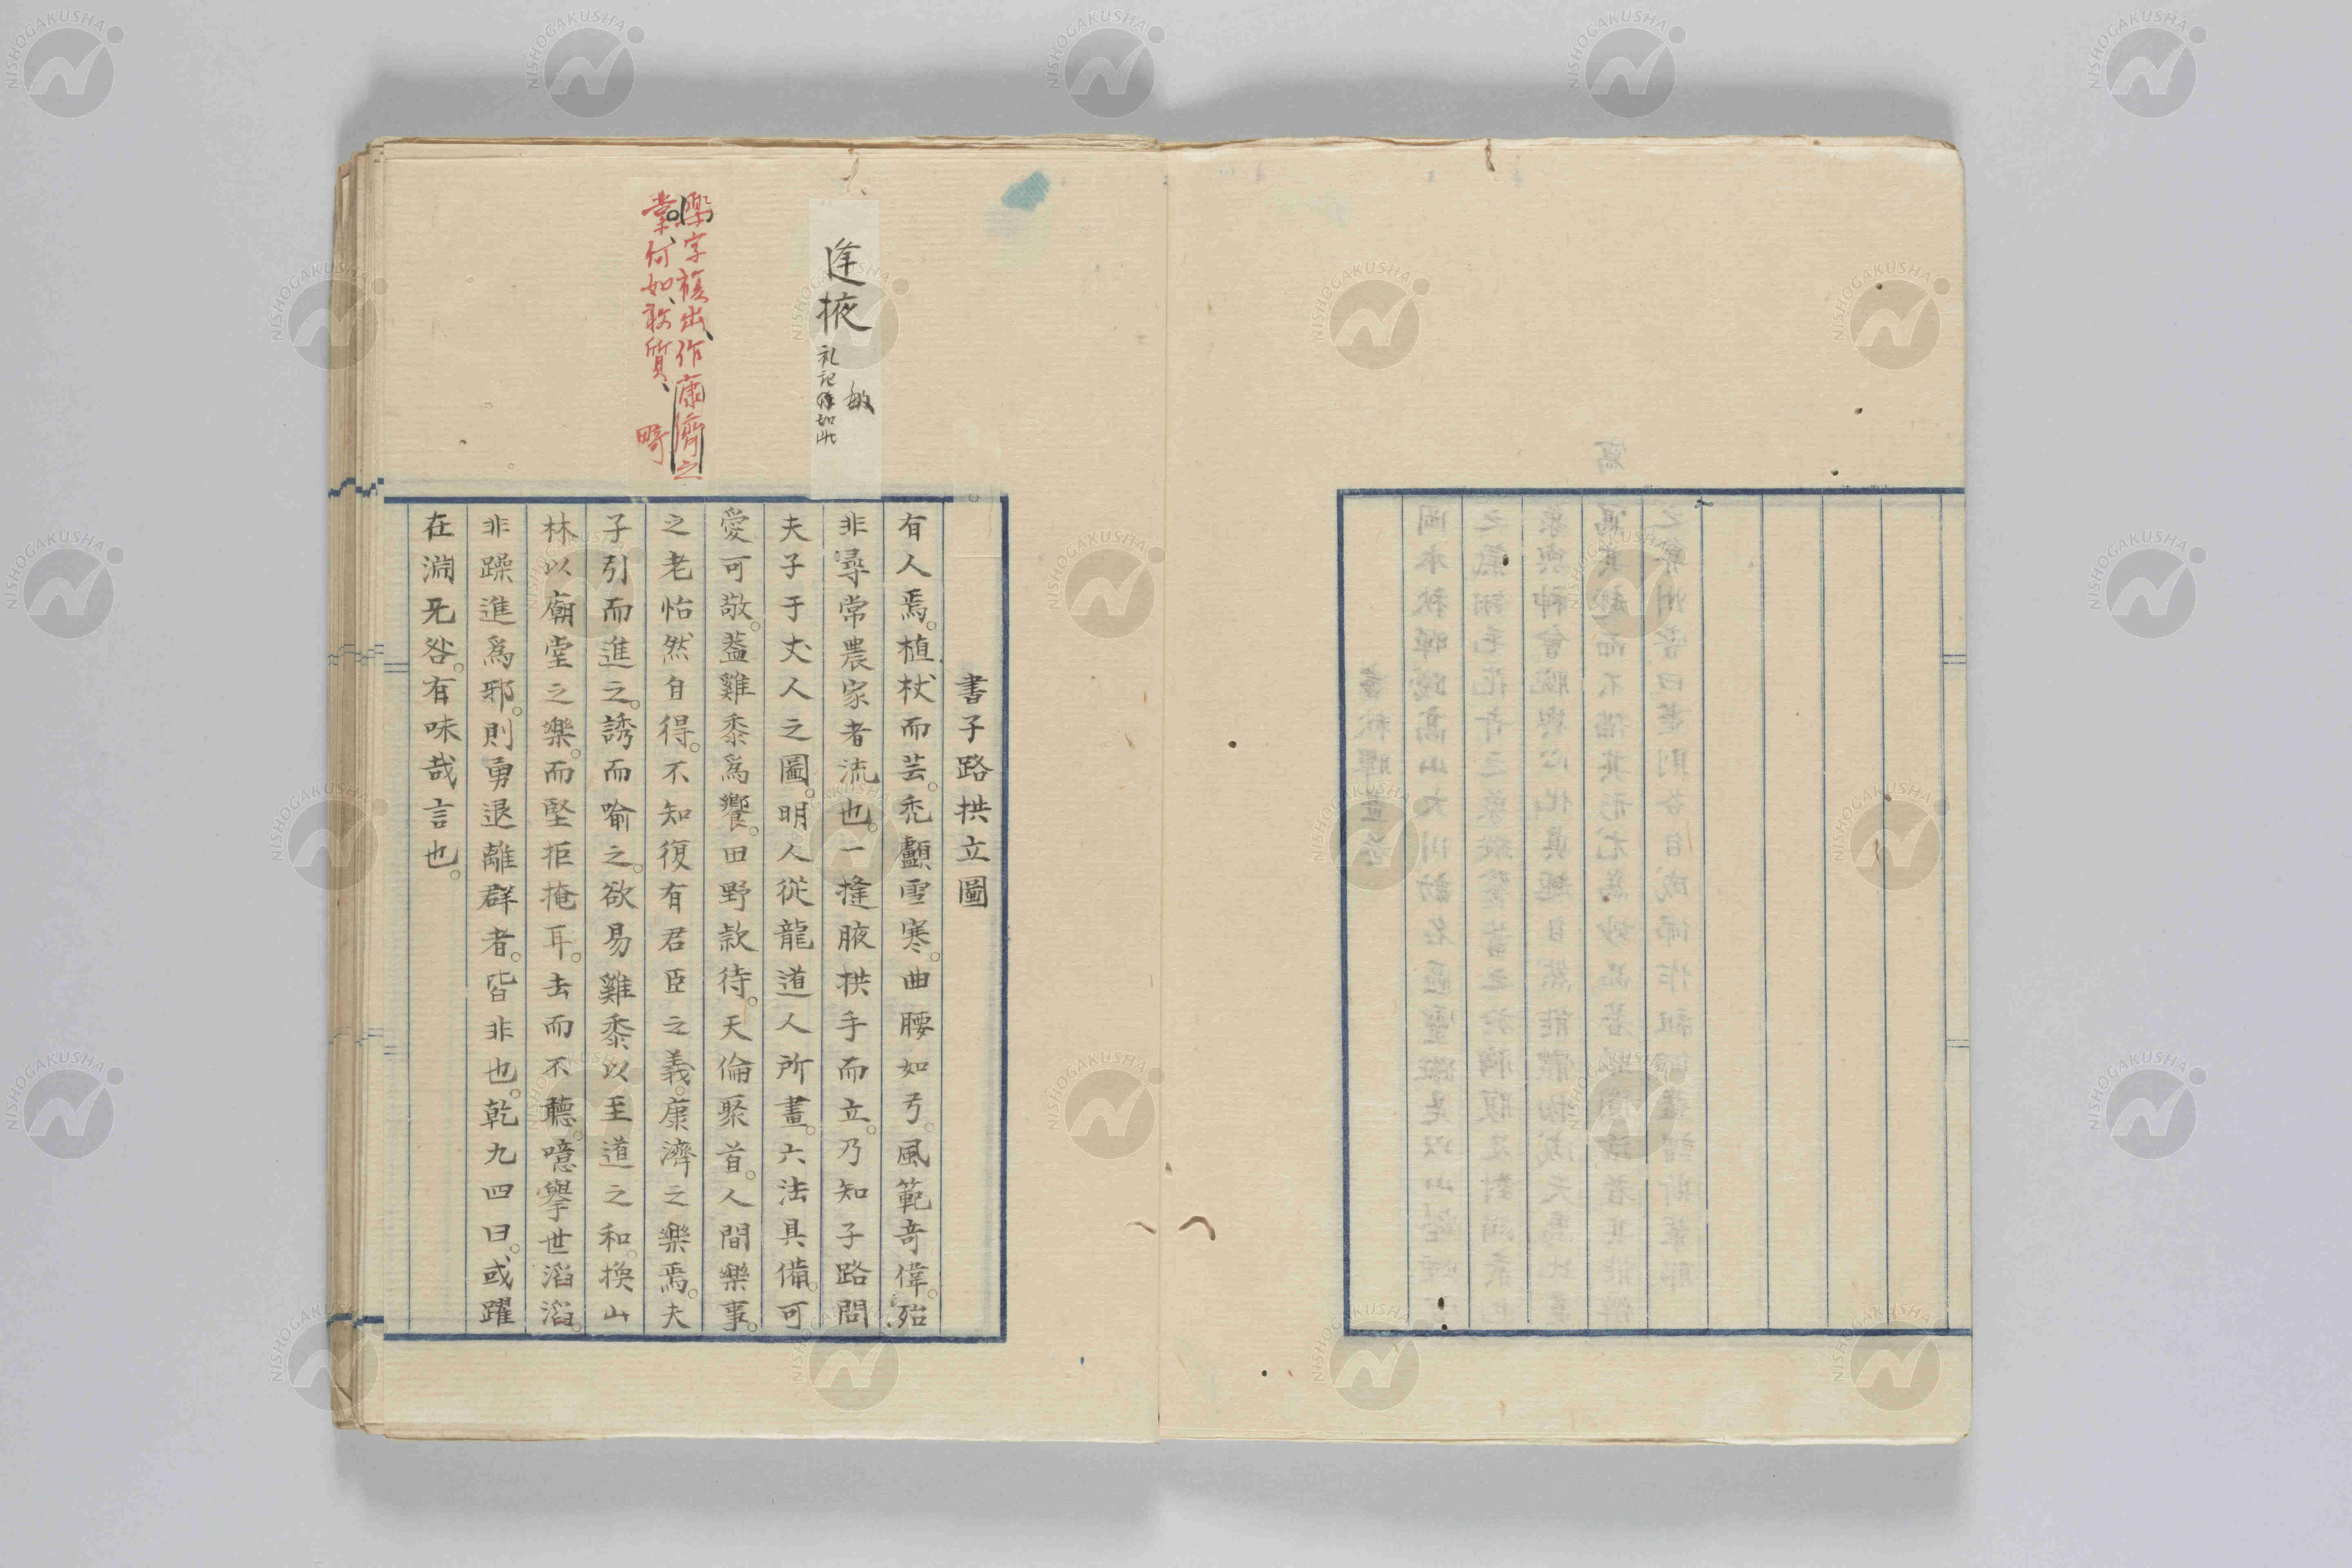 書子路拱立圖
有人焉。植杖而芸。禿顱雪寒。曲腰如弓。風範奇偉。殆
非尋常農家者流也。一摓腋拱手而立。乃知子路問
夫子于丈人之圖。明人従龍道人所畫。六法具備。可
愛可敬。蓋雞黍爲饗。田野款待。天倫聚首。人間樂事。
之老怡然自得。不知復有君臣之義。康濟之樂焉。夫
子引而進之。誘而喻之。欲易雞黍以至道之和。換山
林以廟堂之樂。而堅拒掩耳。去而不聽。噫擧世滔滔。
非躁進爲邪。則勇退離群者。皆非也。乾九四曰。或躍
在淵无咎。有味哉言也。
逢掖
敏
礼記 如此
樂字複出、作康濟之
業、何如、敢質、 畸
NISHOGAKUSHA